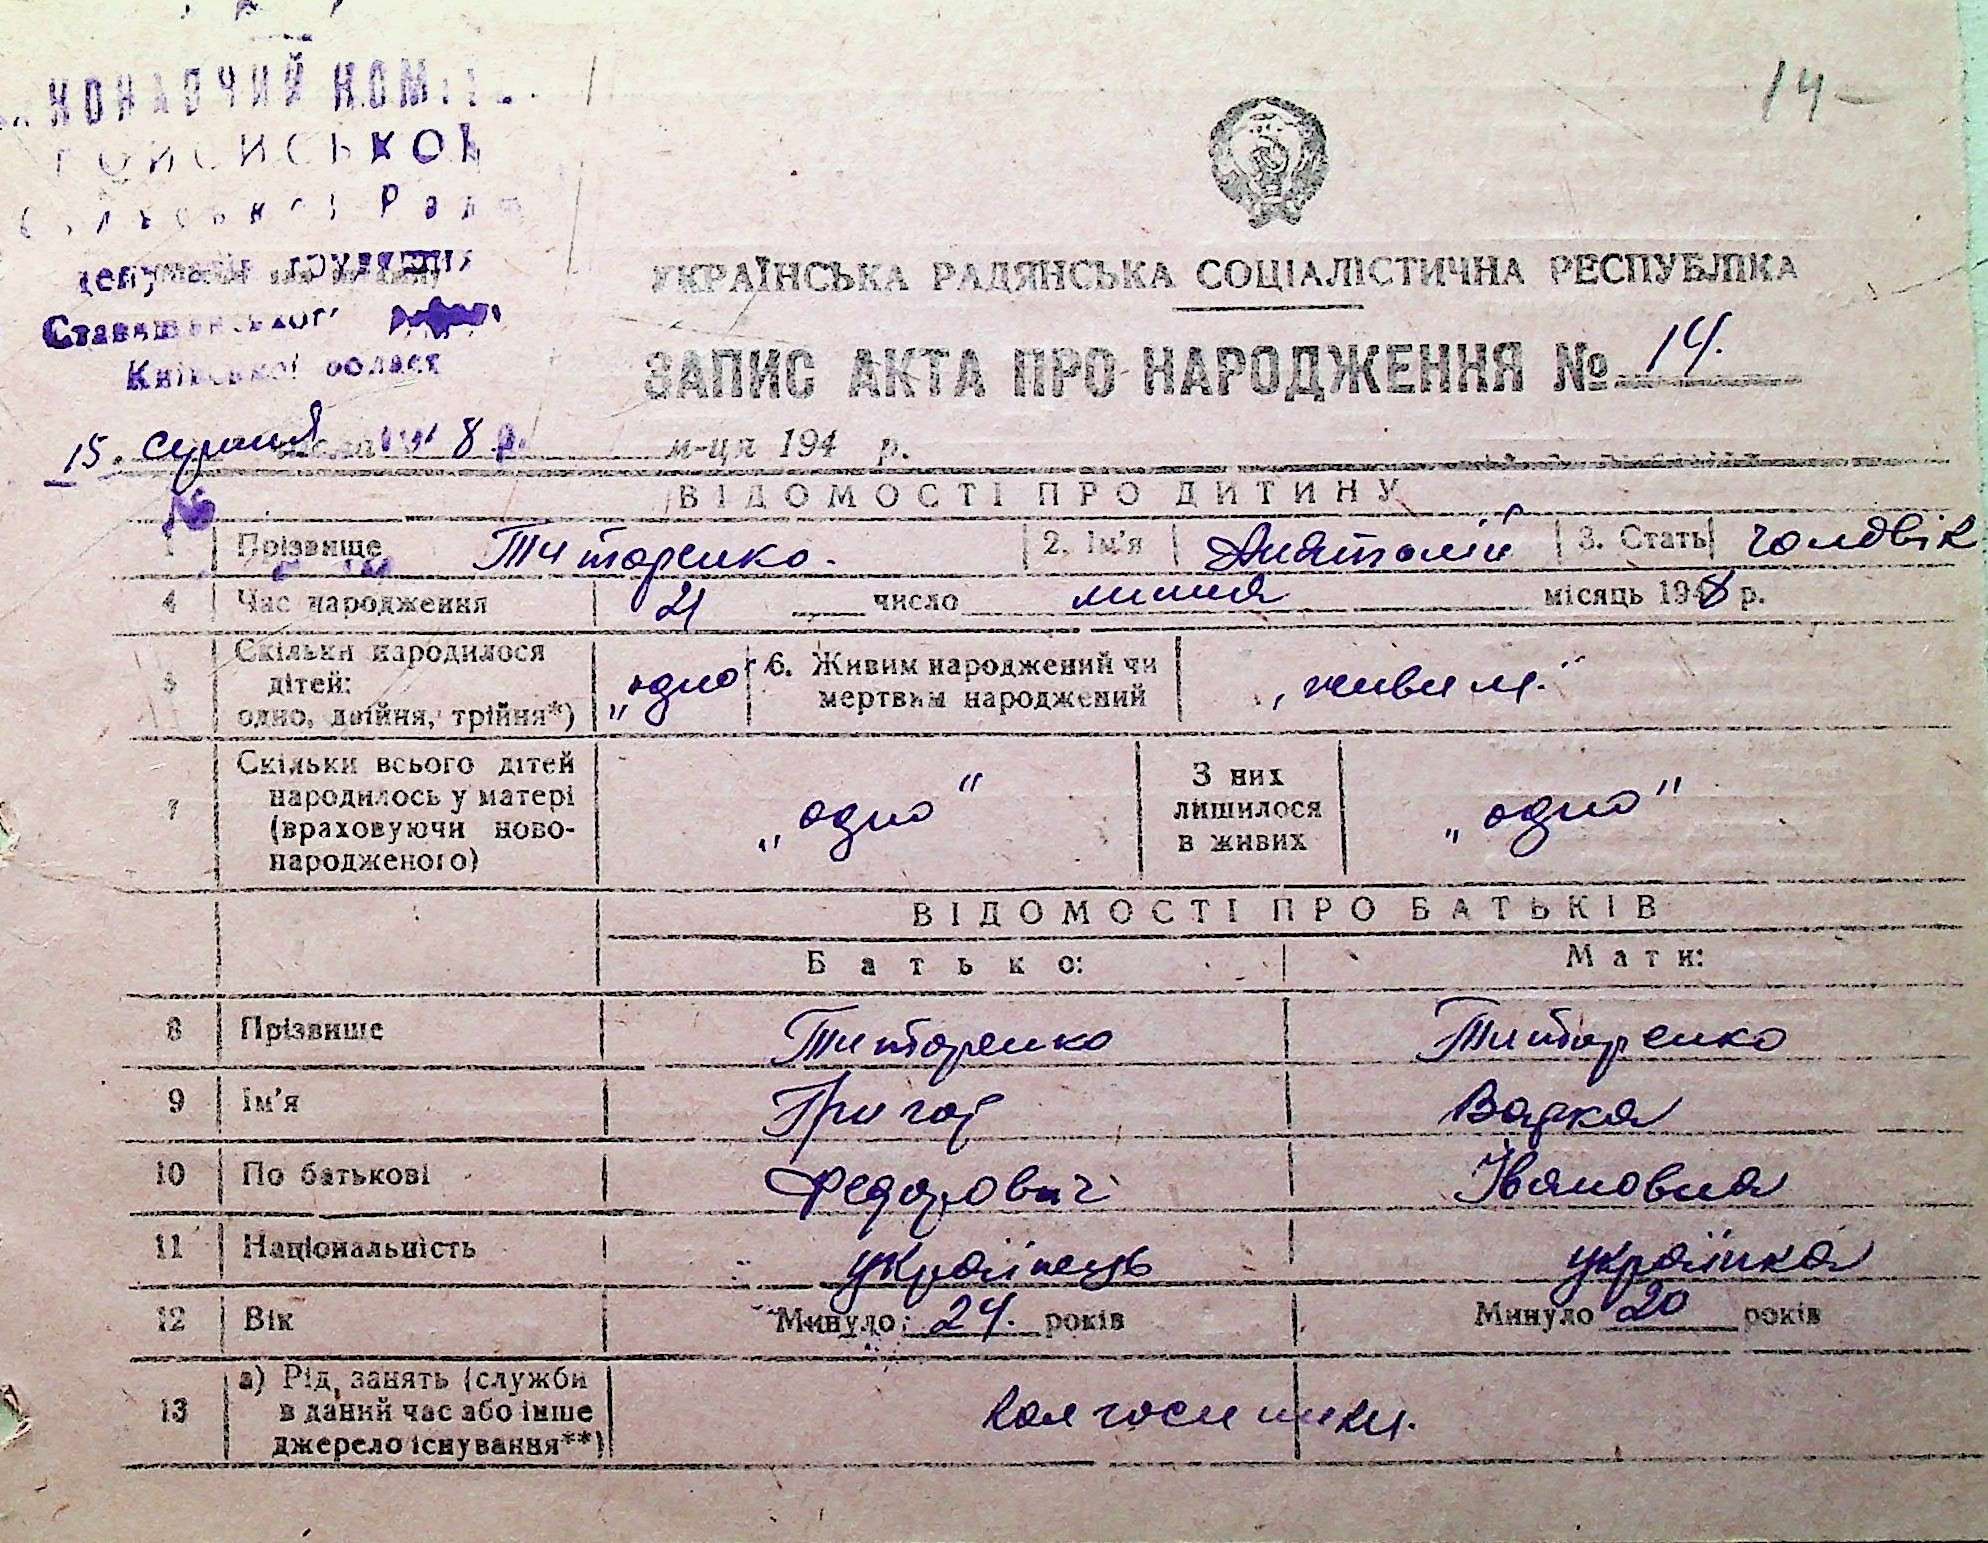 14
КОНАВЧИЙ КОМІ
ОЙСИСЬКОЇ
сільської Рад
депутатів трудящих
Ставищанського
Київської област
УКРАЇНСЬКА РАДЯНСЬКА СОЦІАЛІСТИЧНА РЕСПУБЛІКА
ЗАПИС АКТА ПРО НАРОДЖЕННЯ № 14.
15. серпня 8 р. м-ця 194 р.
ВІДОМОСТІ ПРО ДИТИНУ
1 Прізвище Титаренко. 2. Ім'я Анатолій 3. Стать чоловік
4 Час народження 21 число липня місяць 1948 р.
Скільки народилося
5 дітей: „одно" 6. Живим народжений чи „живим."
одно, двійня, трійня*) мертвим народжений
Скільки всього дітей З них
7 народилось у матері „одно" лишилося „одно"
(враховуючи ново- в живих
народженого)
ВІДОМОСТІ ПРО БАТЬКІВ
Батько: Мати:
8 Прізвище Титаренко Титаренко
9 Ім'я Григор Варка
10 По батькові Федорович Івановна
11 Національність українець українка
12 Вік Минуло 24. років Минуло 20 років
а) Рід занять (служби
13 в даний час або інше колгоспники.
джерело існування**)